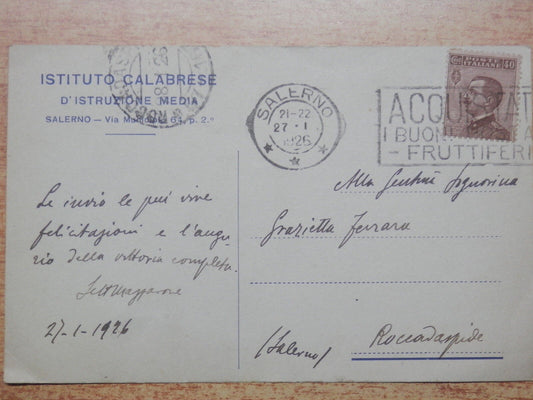 ISTITUTO CALABRESE
D'ISTRUZIONE MEDIA
SALERNO - Via 64, p. 2.º
SALERNO
21-22
27·1
1926
POSTE ITALIANE
Cent 40
ACQUISTATE
I BUONI
FRUTTIFERI
Le invio le più vive
felicitazioni e l'augu-
rio della vittoria completa.
27-1-1926
Alla Gentma Signorina
Grazietta Ferrara
Roccadaspide
(Salerno)